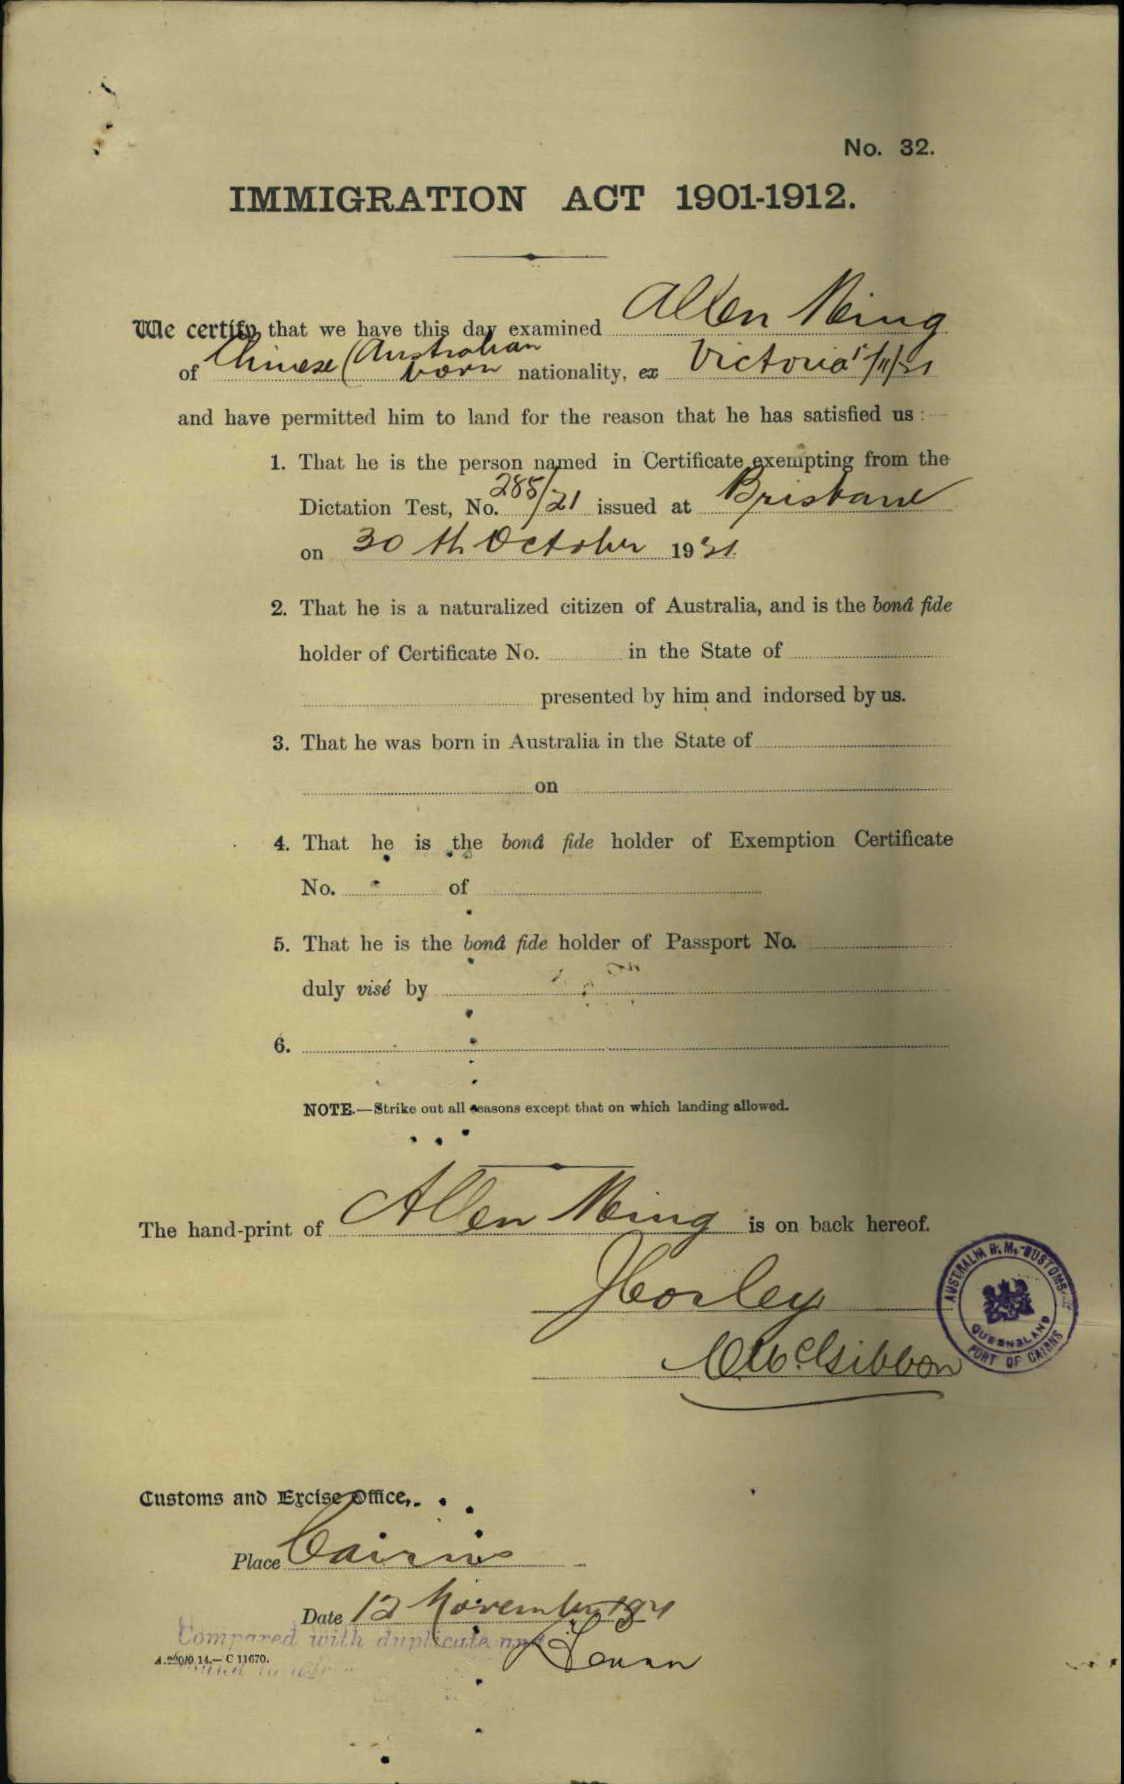 No. 32.
IMMIGRATION ACT 1901-1912.
We certify, that we have this day examined Allen Ming
of Chinese (Australian born nationality, ex Victoria /11/21
and have permitted him to land for the reason that he has satisfied us :—
1. That he is the person named in Certificate exempting from the
Dictation Test, No. 285/21 issued at Brisbane
on 30th October 1921
2. That he is a naturalized citizen of Australia, and is the bonâ fide
holder of Certificate No. in the State of
presented by him and indorsed by us.
3. That he was born in Australia in the State of
on
4. That he is the bonâ fide holder of Exemption Certificate
No. of
5. That he is the bonâ fide holder of Passport No.
duly visé by
6.
NOTE.—Strike out all reasons except that on which landing allowed.
The hand-print of Allen Ming is on back hereof.
AUSTRALIA H.M. CUSTOMS
QUEENSLAND
PORT OF CAIRNS
McGibbon
Customs and Excise Office,
Place Cairns
Date 12 November 1921
Compared with duplicate and
C 11670.